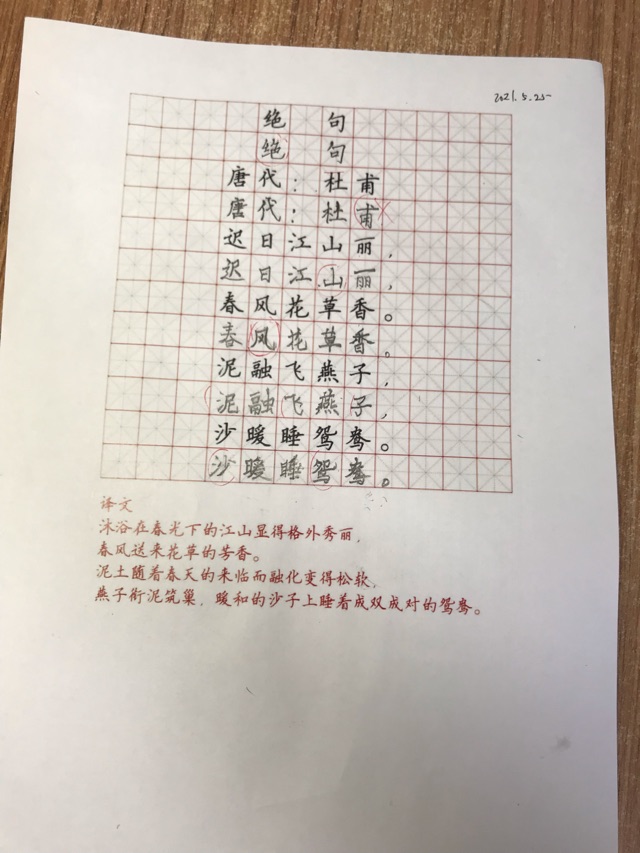 2021.5.25
绝句
绝句
唐代：杜甫
唐代：杜甫
迟日江山丽，
迟日江山丽，
春风花草香。
春风花草香。
泥融飞燕子，
泥融飞燕子，
沙暖睡鸳鸯。
沙暖睡鸳鸯。
译文
沐浴在春光下的江山显得格外秀丽，
春风送来花草的芳香。
泥土随着春天的来临而融化变得松软，
燕子衔泥筑巢，暖和的沙子上睡着成双成对的鸳鸯。